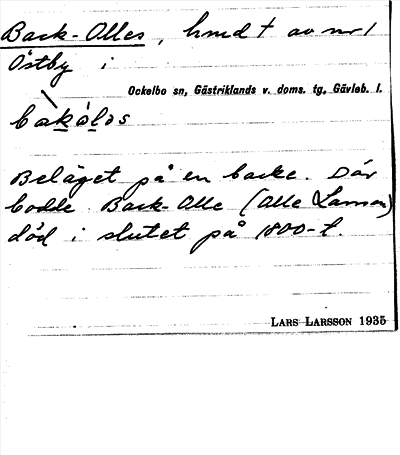 Back-Olles, hmd t av nr 1
Östby i
Ockelbo sn, Gästriklands v. doms. tg, Gävleb. l.
Beläget på en backe. Där
bodde Back-Olle (Olle Larsson)
död i slutet på 1800-t.
LARS LARSSON 1935